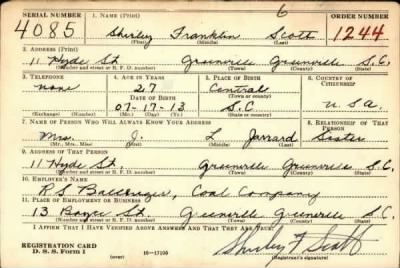 SERIAL NUMBER 1. NAME (Print) 6 ORDER NUMBER
4085 Shirley Franklin Scott 1244
(First) (Middle) (Last)
2. ADDRESS (Print)
11 Hyde St. Greenville Greenville S.C.
(Number and street or R. F. D. number) (Town) (County) (State)
3. TELEPHONE 4. AGE IN YEARS 5. PLACE OF BIRTH 6. COUNTRY OF CITIZENSHIP
none 27 Central
DATE OF BIRTH (Town or county)
07-17-13 S.C U.S.A.
(Exchange) (Number) (Mo.) (Day) (Yr.) (State or country)
7. NAME OF PERSON WHO WILL ALWAYS KNOW YOUR ADDRESS 8. RELATIONSHIP OF THAT PERSON
Mrs. J. L Jarrard Sister
(Mr., Mrs., Miss) (First) (Middle) (Last)
9. ADDRESS OF THAT PERSON
11 Hyde St. Greenville Greenville S.C.
(Number and street or R. F. D. number) (Town) (County) (State)
10. EMPLOYER'S NAME
R.S. Coal Company
11. PLACE OF EMPLOYMENT OR BUSINESS
13 St. Greenville Greenville S.C.
(Number and street or R. F. D. number) (Town) (County) (State)
I AFFIRM THAT I HAVE VERIFIED ABOVE ANSWERS AND THAT THEY ARE TRUE.
REGISTRATION CARD
D. S. S. Form 1 (over) 16-17105 Shirley F Scott
(Registrant's signature)